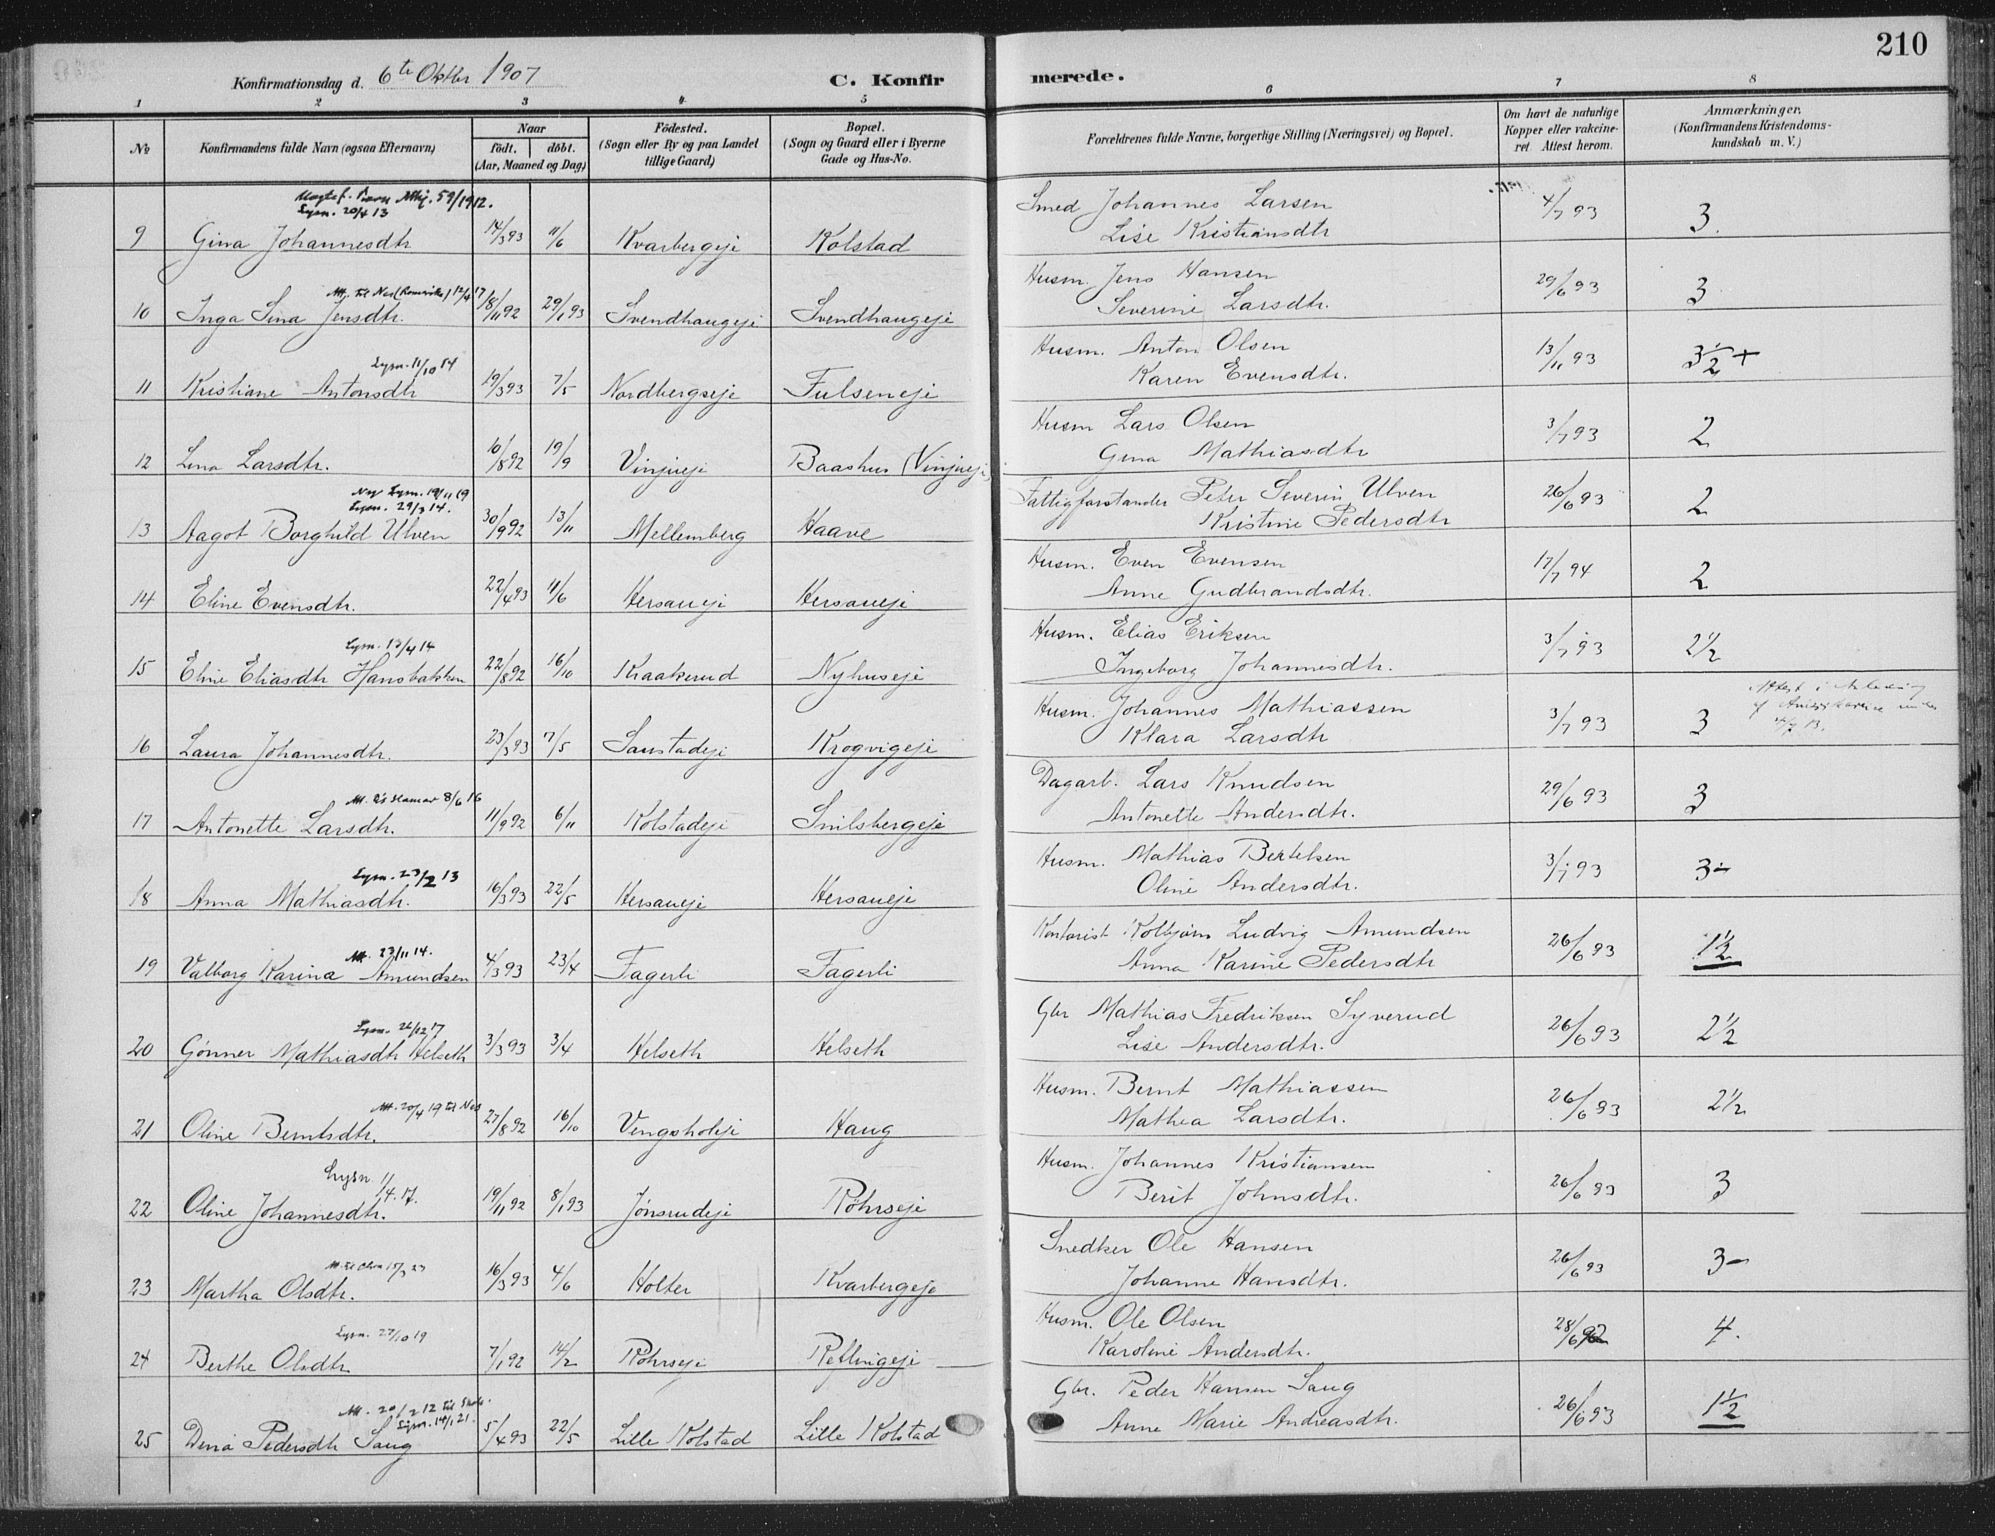 210
Konfirmationsdag d. 6te Oktbr 1907
C. Konfirmerede.
1 2 3 4 5 6 7 8
No
Konfirmandens fulde Navn (ogsaa Efternavn)
Naar
født. døbt.
(Aar, Maaned og Dag)
Fødested.
(Sogn eller By og paa Landet
tillige Gaard)
Bopæl.
(Sogn og Gaard eller i Byerne
Gade og Hus-No.
Forældrenes fulde Navne, borgerlige Stilling (Næringsvei) og Bopæl.
Om havt de naturlige
Kopper eller vakcine-
ret Attest herom.
Anmærkninger,
(Konfirmandens Kristendoms-
kundskab m. V.)
59/1912.
Lysn. 20/4 13
Smed Johannes Larsen
9 Gina Johannesdtr 14/3 93 11/6 Kvarbergeje Kolstad Lise Kristiansdtr 4/7 93 3.
Att. til Nes (Romerike) 12/4 17
Husm. Jens Hansen
10 Inga Sina Jensdtr. 18/11 92 29/1 93 Svendhaugeje Svendhaugeje Severine Larsdtr. 29/6 93 3
Lysn. 11/10 14
Husm. Anton Olsen
11 Kristiane Antonsdtr 19/3 93 7/5 Nordbergseje Fulseneje Karen Evensdtr. 13/11 93 3 1/2 +
Husm Lars Olsen
12 Lina Larsdtr. 10/8 92 19/9 Vinjueje Baashus (Vinjueje) Gina Mathiasdtr 3/7 93 2
Ny Lysn. 19/11 19
Lysn. 29/3 14.
Fattigforstander Peter Severin Ulven
13 Aagot Borghild Ulven 30/9 92 13/11 Mellemberg Haave Kristine Pedersdtr 26/6 93 2
Husm. Even Evensen
14 Eline Evensdtr. 22/4 93 11/6 Hersaueje Hersaueje Anne Gudbrandsdtr. 17/7 94 2
Lysn. 13/4 14
Husm. Elias Eriksen
15 Eline Eliasdtr Hansbakken 22/8 92 16/10 Kraakerud Nyhuseje Ingeborg Johannesdtr. 3/7 93 2 1/2
Husm. Johannes Mathiassen
16 Laura Johannesdtr. 23/3 93 7/5 Saustadeje Krogvigeje Klara Larsdtr 3/7 93 3
Att. til Hamar 8/6 16
Dagarb. Lars Knudsen
17 Antonette Larsdtr. 11/9 92 6/11 Kolstadeje Snilsbergeje Antonette Andersdtr. 29/6 93 3
Lysn. 23/2 13
Husm. Mathias Bertelsen
18 Anna Mathiasdtr. 16/3 93 22/5 Hersaueje Hersaueje Oline Andersdtr. 3/7 93 3-
Att. 23/11 14.
Kontorist Kolbjørn Ludvig Amundsen
19 Valborg Karina Amundsen 4/3 93 23/4 Fagerli Fagerli Anna Karine Pedersdtr 26/6 93 1 1/2
Lysn. 26/12 17
Gbr Mathias Fredriksen Syverud
20 Gønner Mathiasdtr Helseth 3/3 93 3/4 Helseth Helseth Lise Andersdtr. 26/6 93 2 1/2
Att. 20/4 19 til Nes
Husm. Bernt Mathiassen
21 Oline Berntsdtr. 27/8 92 16/10 Vengsholeje Haug Mathea Larsdtr. 26/6 93 2 1/2
Lysn 1/4.17.
Husm. Johannes Kristiansen
22 Oline Johannesdtr. 19/11 92 8/1 93 Jønsrudeje Röhrseje Berit Johnsdtr. 26/6 93 3
Snedker Ole Hansen
23 Martha Olsdtr. 16/3 93 4/6 Holter Kvarbergeje Johanne Hansdtr. 26/6 93 3-
Lysn. 27/10 19
Husm. Ole Olsen
24 Berthe Olsdtr 7/1 92 14/2 Röhrseje Reflingeje Karoline Andersdtr. 28/6 92 4.
Lysn. 14/1 21.
Gbr. Peder Hansen Saug
25 Dina Pedersdtr Saug 5/4 93 22/5 Lille Kolstad Lille Kolstad Anne Marie Andreasdtr. 26/6 93 1 1/2